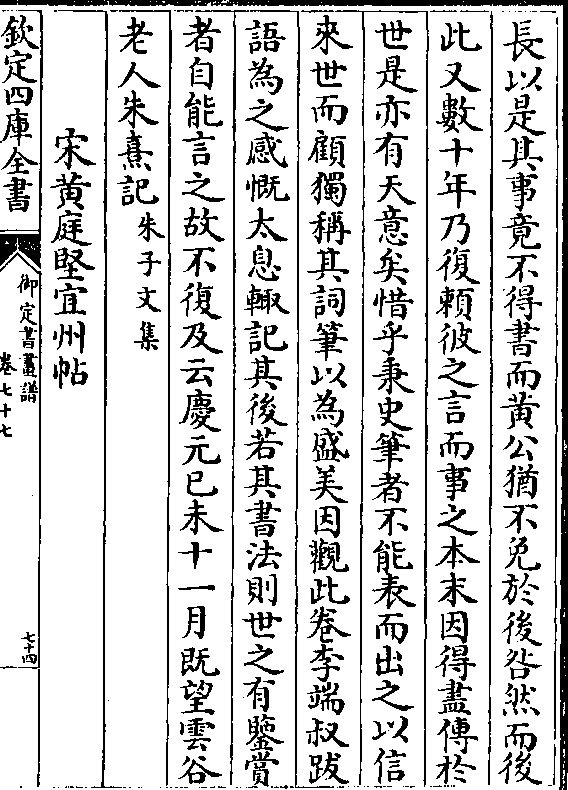 長以是其事竟不得書而黄公猶不免於後咎然而後
此又數十年乃復頼彼之言而事之本末因得盡傳於
世是亦有天意矣惜乎秉史筆者不能表而出之以信
來世而顧獨稱其詞筆以為盛美因觀此卷李端叔跋
語為之感慨太息輙記其後若其書法則世之有鑒賞
者自能言之故不復及云慶元已未十一月既望雲谷
老人朱熹記朱子文集
宋黄庭堅宜州帖
欽定四庫全書
御定書畫譜
卷七十七
七十四